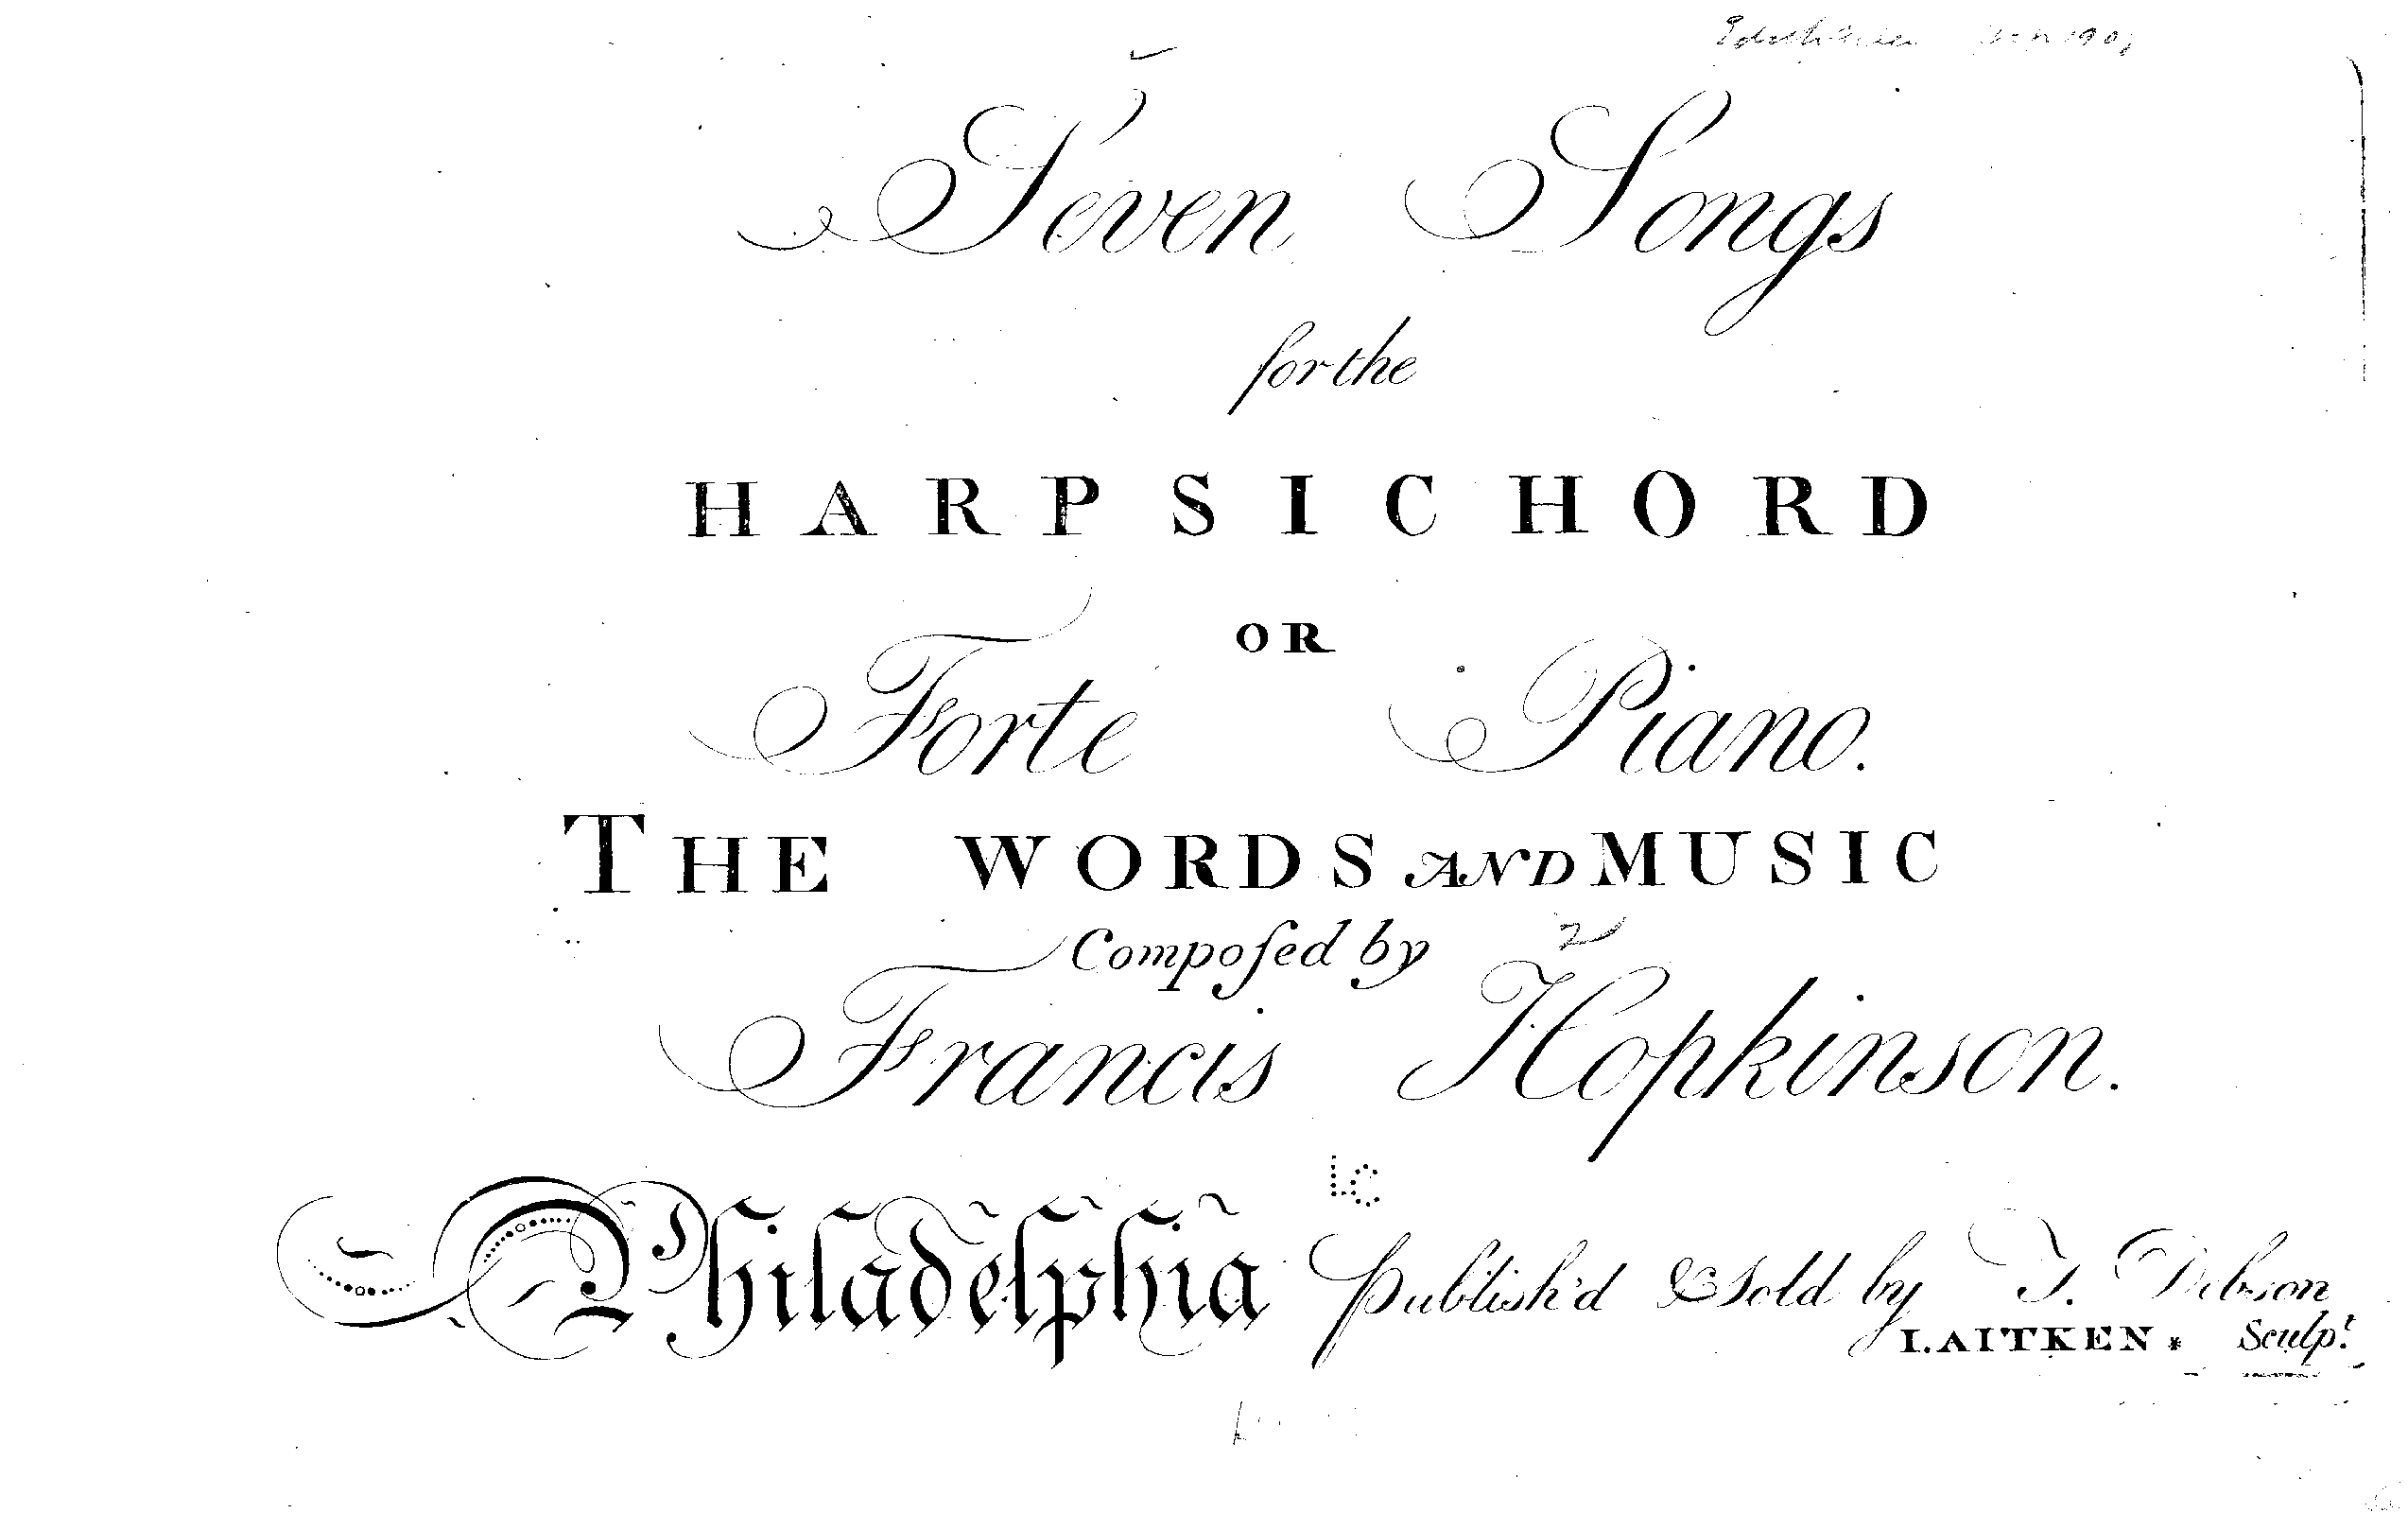 Seven Songs
for the
HARPSICHORD
OR
Forte Piano.
THE WORDS AND MUSIC
Compoſed by
Francis Hopkinson.
LC
Philadelphia Publish'd & Sold by T. Dobson
I. AITKEN * Sculpt.